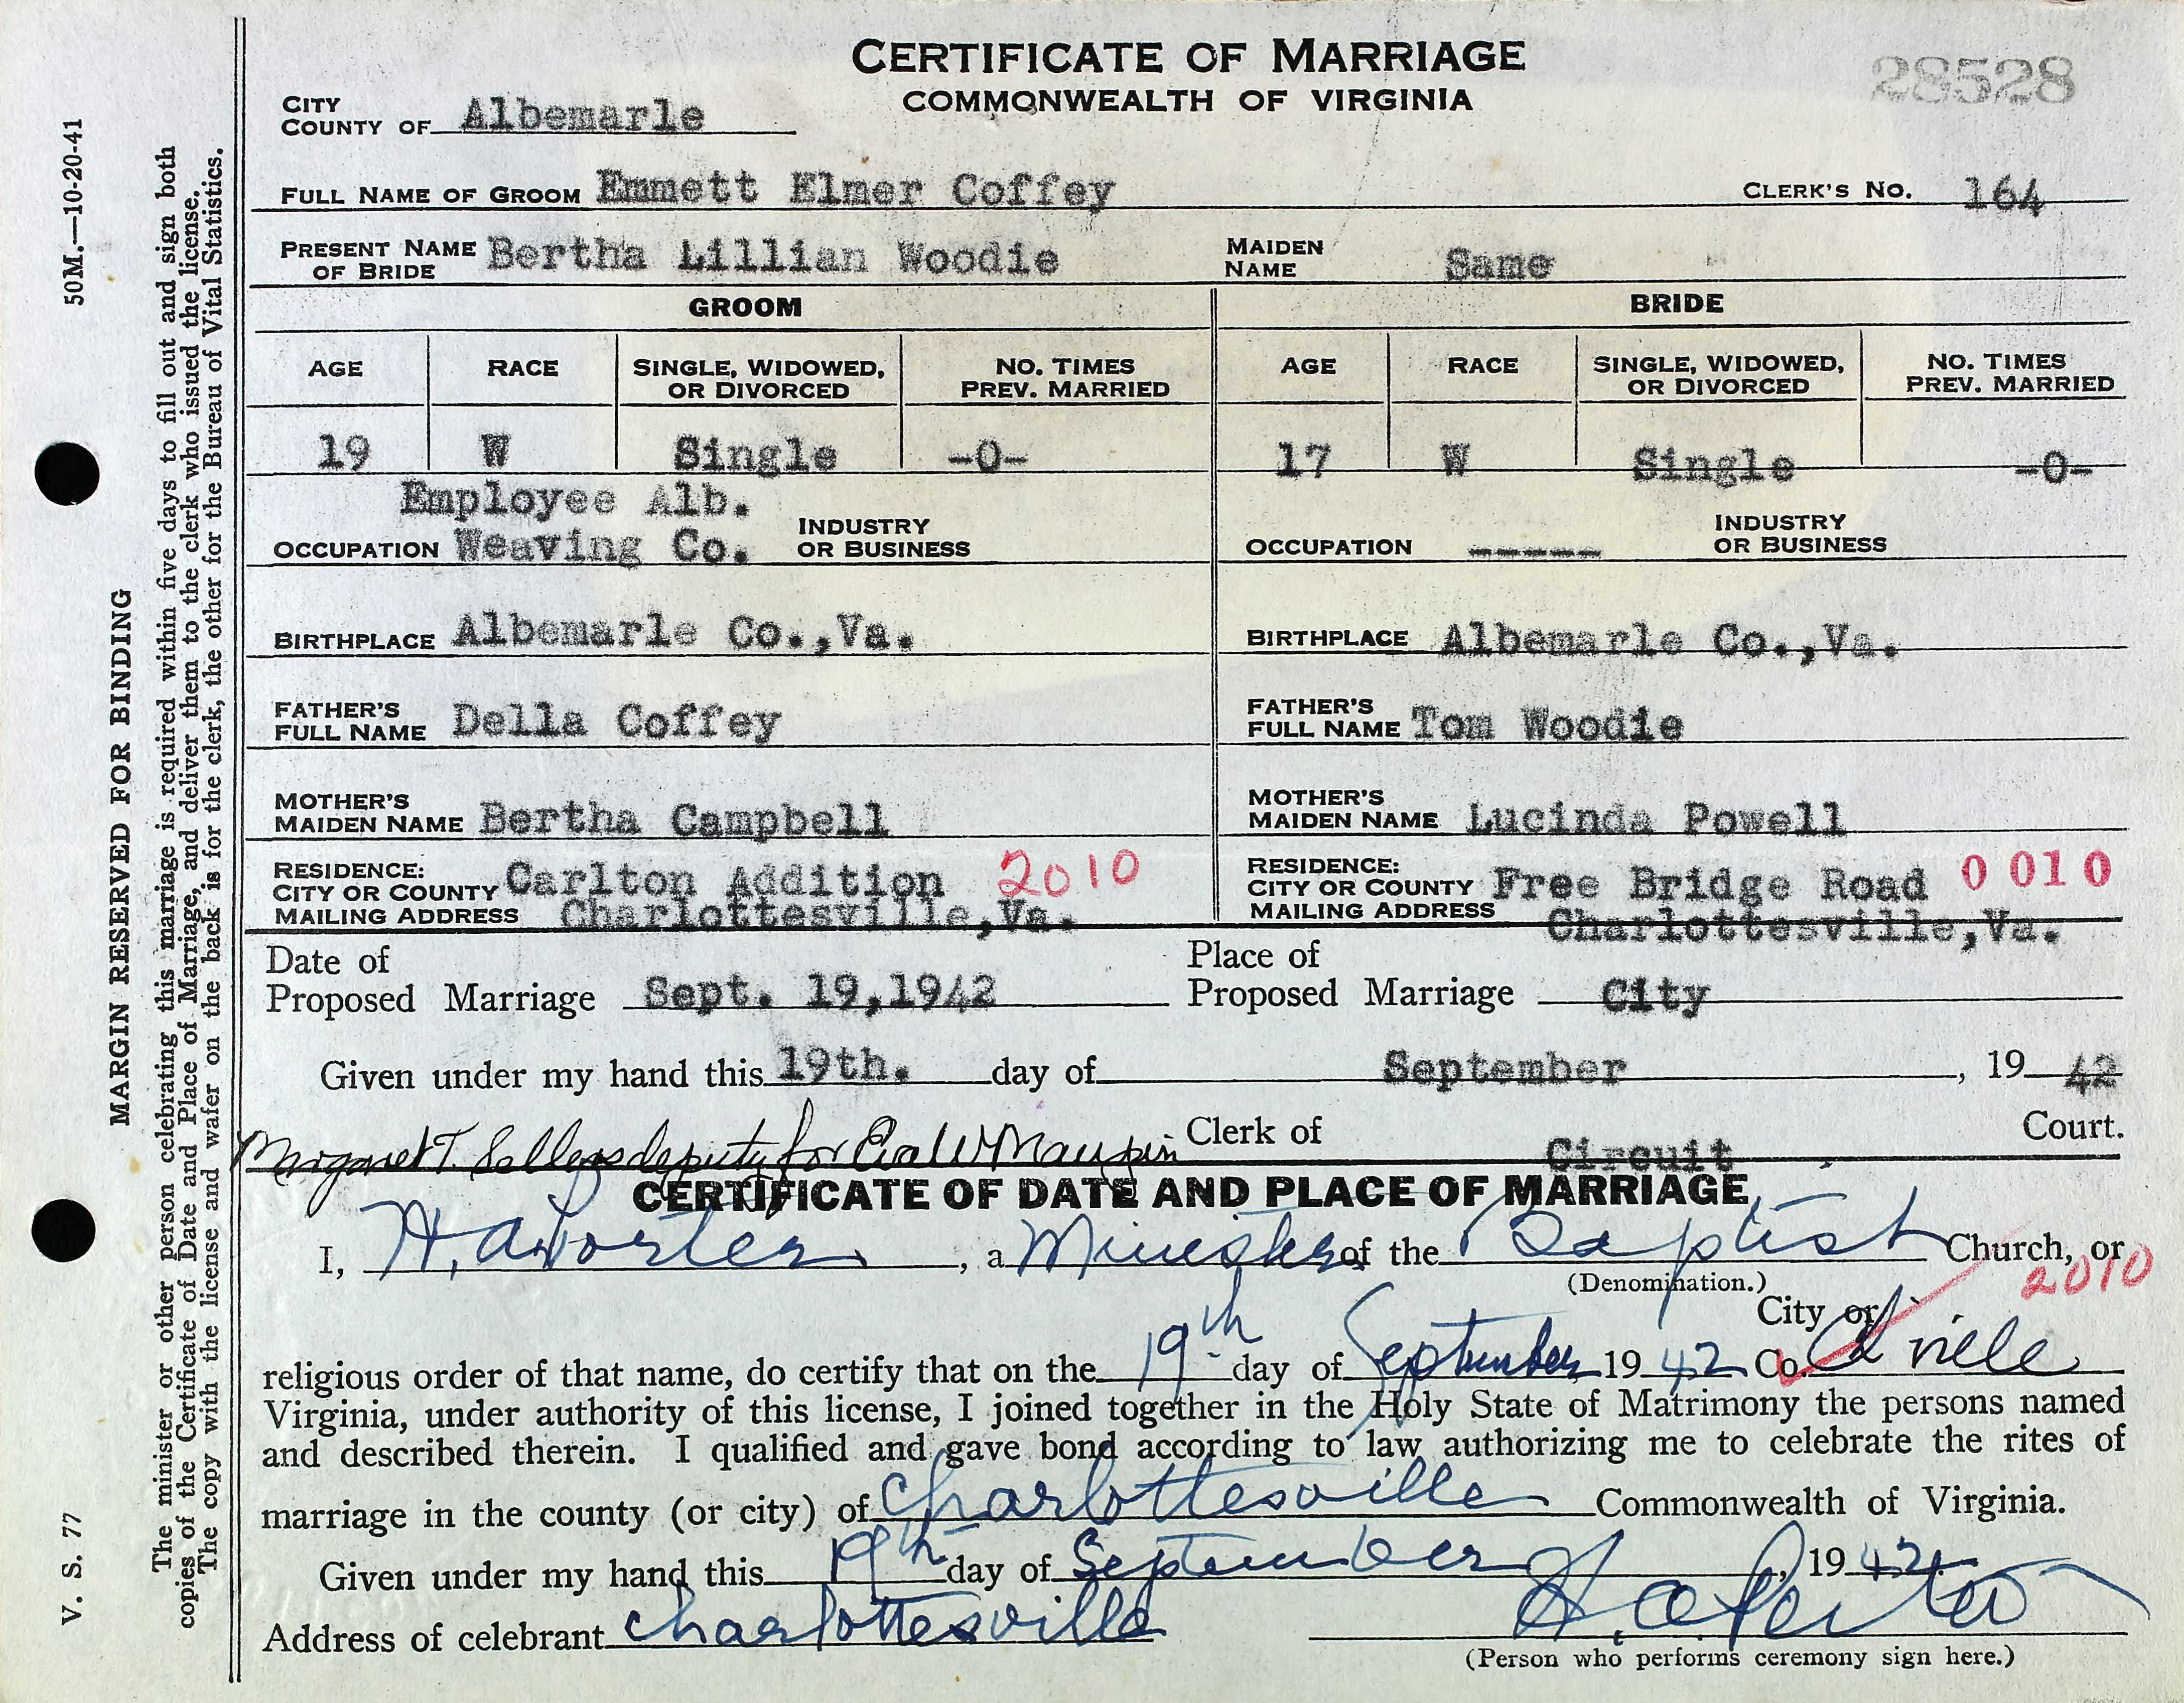 CERTIFICATE OF MARRIAGE
COMMONWEALTH OF VIRGINIA
28528
CITY
COUNTY OF Albemarle
FULL NAME OF GROOM Emmett Elmer Coffey CLERK'S NO. 164
PRESENT NAME OF BRIDE Bertha Lillian Woodie MAIDEN NAME Same
GROOM BRIDE
AGE RACE SINGLE, WIDOWED, OR DIVORCED NO. TIMES PREV. MARRIED AGE RACE SINGLE, WIDOWED, OR DIVORCED NO. TIMES PREV. MARRIED
19 W Single -0- 17 W Single -0-
OCCUPATION Employee Alb. Weaving Co. INDUSTRY OR BUSINESS OCCUPATION ----- INDUSTRY OR BUSINESS
BIRTHPLACE Albemarle Co.,Va. BIRTHPLACE Albemarle Co.,Va.
FATHER'S FULL NAME Della Coffey FATHER'S FULL NAME Tom Woodie
MOTHER'S MAIDEN NAME Bertha Campbell MOTHER'S MAIDEN NAME Lucinda Powell
RESIDENCE: CITY OR COUNTY MAILING ADDRESS Carlton Addition Charlottesville,Va. 2010 RESIDENCE: CITY OR COUNTY MAILING ADDRESS Free Bridge Road Charlottesville,Va. 0 01 0
Date of Proposed Marriage Sept. 19,1942 Place of Proposed Marriage City
Given under my hand this 19th. day of September, 19 42
Margaret T. Sellers deputy for Eva W Maupin Clerk of Circuit Court.
CERTIFICATE OF DATE AND PLACE OF MARRIAGE
I, H. A. Porter, a Minister of the Baptist Church, or
(Denomination.)
2010
City or
religious order of that name, do certify that on the 19th day of September 19 42 Co. Ch'ville
Virginia, under authority of this license, I joined together in the Holy State of Matrimony the persons named
and described therein. I qualified and gave bond according to law authorizing me to celebrate the rites of
marriage in the county (or city) of Charlottesville Commonwealth of Virginia.
Given under my hand this 19th day of September, 19 42.
Address of celebrant Charlottesville H. A. Porter
(Person who performs ceremony sign here.)
50M.—10-20-41
MARGIN RESERVED FOR BINDING
V. S. 77
The minister or other person celebrating this marriage is required within five days to fill out and sign both
copies of the Certificate of Date and Place of Marriage, and deliver them to the clerk who issued the license.
The copy with the license and wafer on the back is for the clerk, the other for the Bureau of Vital Statistics.